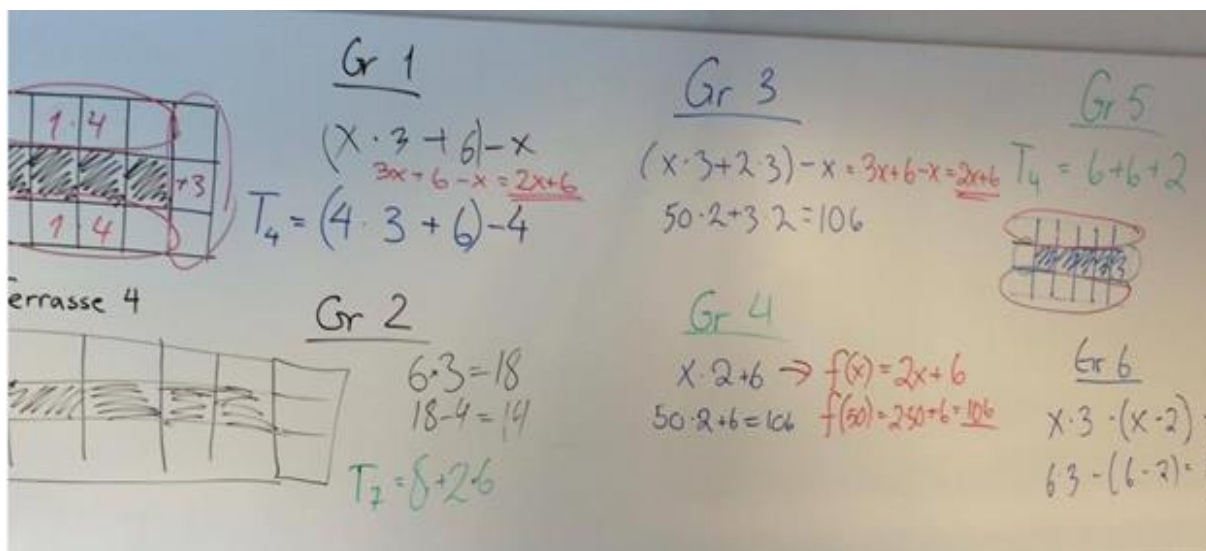 1·4
+3
1 4
errasse 4
Gr 1
(x·3+6)-x
3x+6-x=2x+6
T₄=(4·3+6)-4
Gr 2
6·3=18
18-4=14
T₇=8+2·6
Gr 3
(x·3+2·3)-x=3x+6-x=2x+6
50·2+3·2=106
Gr 4
x·2+6→f(x)=2x+6
50·2+6=106 f(50)=2·50+6=106
Gr 5
T₄=6+6+2
Gr 6
x·3-(x-2)
6·3-(6-2)=